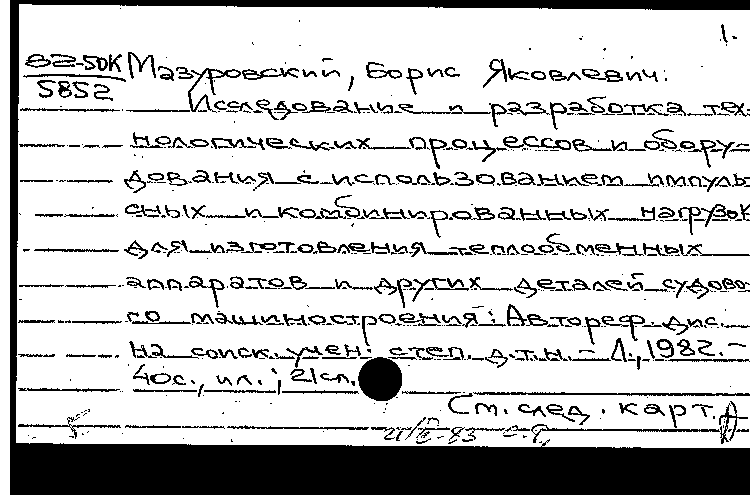 1.
82-50К Мазуровский, Борис Яковлевич.
5852
Исследование и разработка тех-
нологических процессов и обору-
дования с использованием импуль-
сных и комбинированных нагрузок
для изготовления теплообменных
аппаратов и других деталей судово-
го машиностроения: Автореф. дис.
на соиск. учен. степ. д.т.н. - Л., 1982. -
40с., ил.; 21см.
См. след. карт.